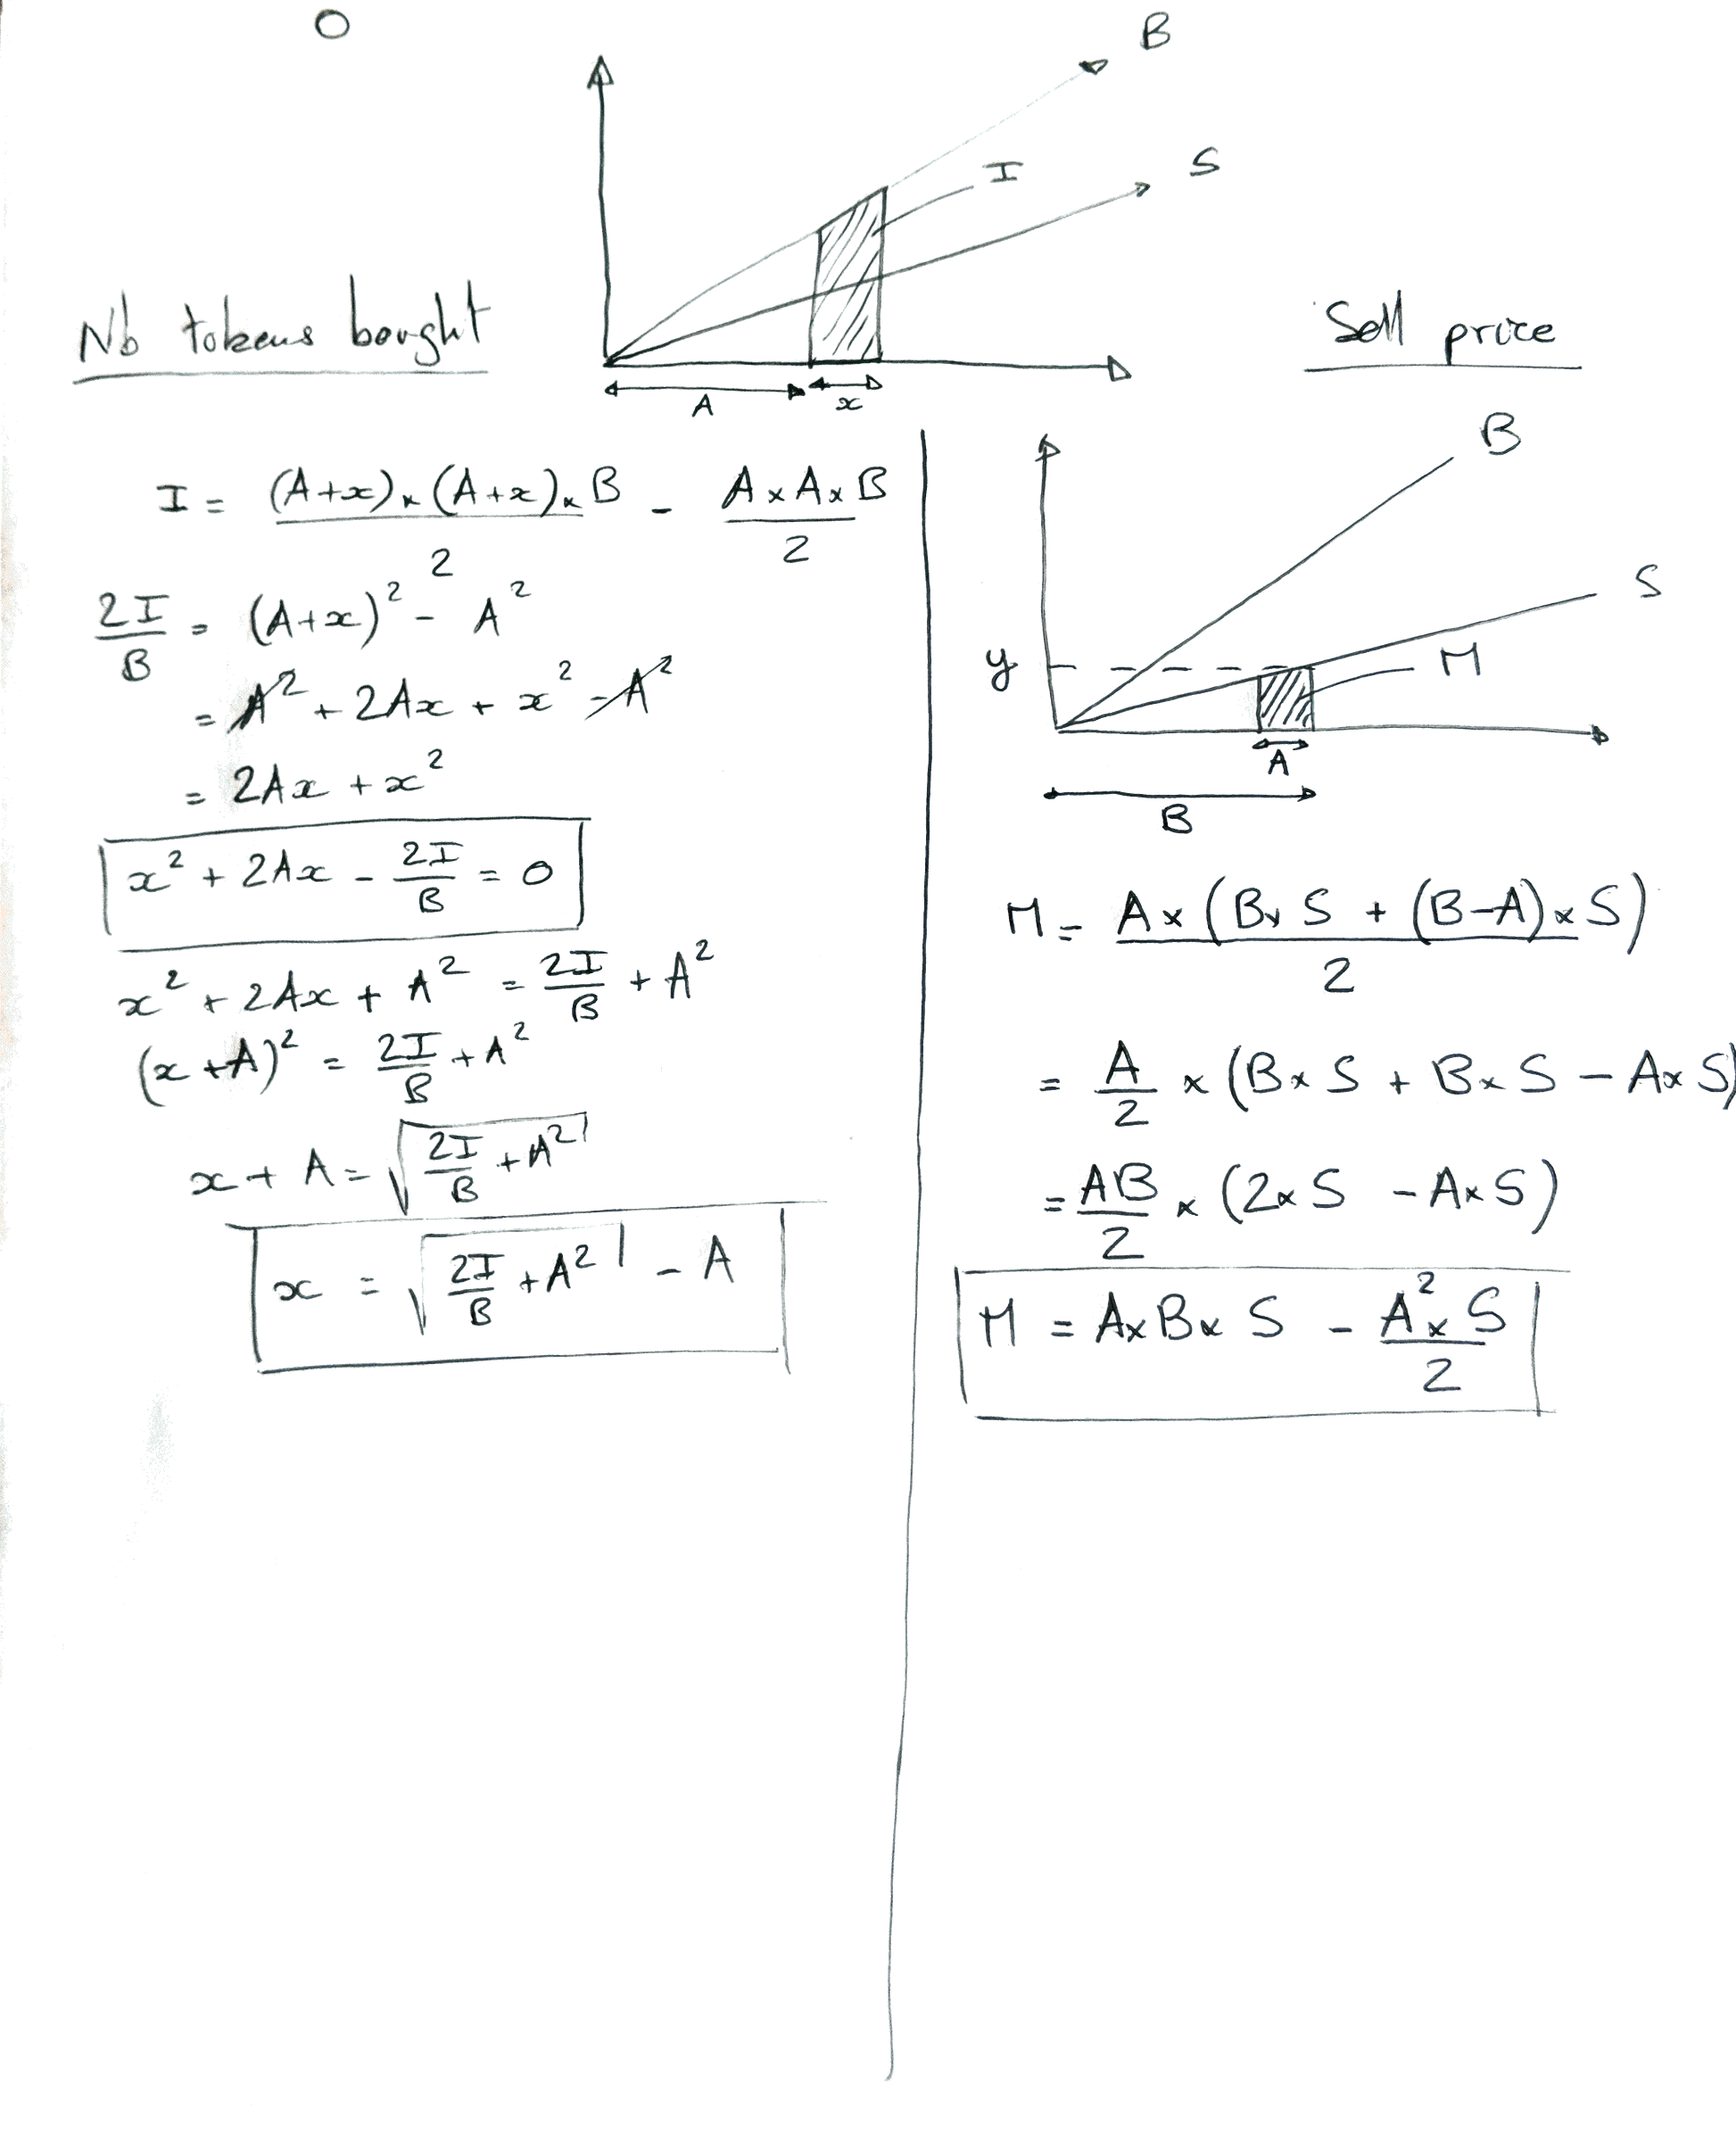 O
B
I
S
A
x
Nb tokens bought
I = (A+x) × (A+x) × B / 2 - A × A × B / 2
2I/B = (A+x)² - A²
= A² + 2Ax + x² - A²
= 2Ax + x²
x² + 2Ax - 2I/B = 0
x² + 2Ax + A² = 2I/B + A²
(x+A)² = 2I/B + A²
x + A = √(2I/B + A²)
x = √(2I/B + A²) - A
Sell price
B
S
y
M
A
B
M = A × (B × S + (B-A) × S) / 2
= A/2 × (B × S + B × S - A × S)
= AB/2 × (2 × S - A × S)
M = A × B × S - A² × S / 2